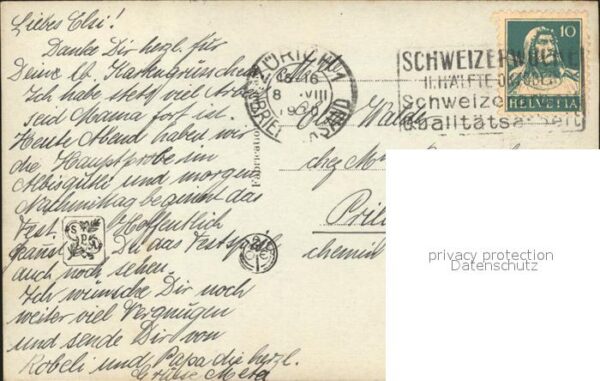 Liebes Elsi!
Danke Dir herzl. für
Deine lb. Kartengrüsschen
Ich habe stets viel
seid Mama fort ist.
Heute Abend haben wir
die Hauptprobe im
Albisgütli und morgen
Nachmittag beginnt das
Fest. Hoffentlich
kannst Du das Festspiel
auch noch sehen.
Ich wünsche Dir noch
weiter viel Vergnügen
und sende Dir von
Robeli und Papa die herzl.
Grüsse Meta
ZÜRICH 1
8. VIII
BRIEFVERSAND
SCHWEIZERWOCHE
II. HÄLFTE OKTOBER
Schweizer
Qualitätsarbeit
10
HELVETIA
Fabrication
Elsi Waldv
chez
Prill
chemin
privacy protection
Datenschutz